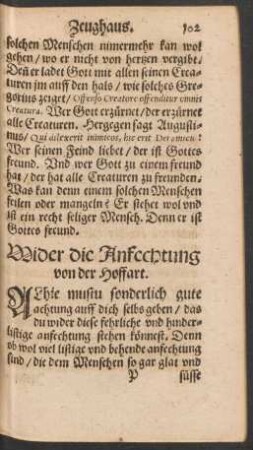 Zeughaus. 102
solchen Menschen nimermehr kan wol
gehen / wo er nicht von hertzen vergibt.
Deñ er ladet Gott mit allen seinen Crea-
turen jm auff den hals / wie solches Gre-
gorius zeiget / Offenso Creatore offenditur omnis
Creatura. Wer Gott erzürnet / der erzürnet
alle Creaturen. Hergegen sagt Augusti-
nus / Qui dilexerit inimicos, hic erit Dei amicus:
Wer seinen Feind liebet / der ist Gottes
freund. Vnd wer Gott zu einem freund
hat / der hat alle Creaturen zu freunden.
Was kan denn einem solchen Menschen
feilen oder mangeln? Er stehet wol vnd
ist ein recht seliger Mensch. Denn er ist
Gottes freund.
Wider die Anfechtung
von der Hoffart.
Alhie mustu sonderlich gute
achtung auff dich selbs geben / das
du wider diese fehrliche vnd hinder-
listige anfechtung stehen könnest. Denn
ob wol viel listige vnd behende anfechtung
sind / die dem Menschen so gar glat vnd
P süsse